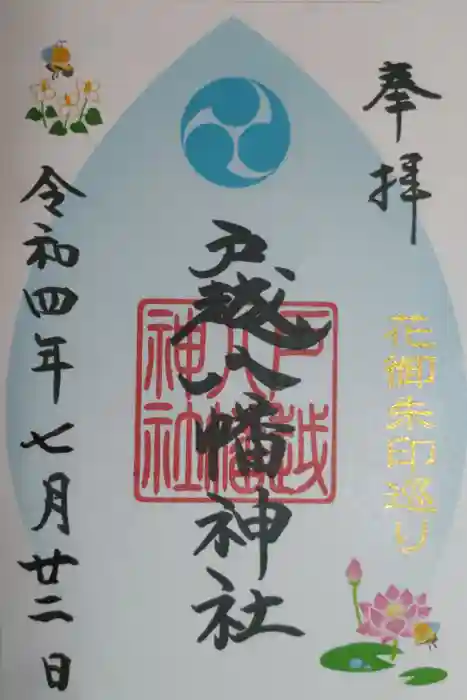 奉拝
花御朱印巡り
戸越八幡神社
戸越
八幡
神社
令和四年七月廿二日